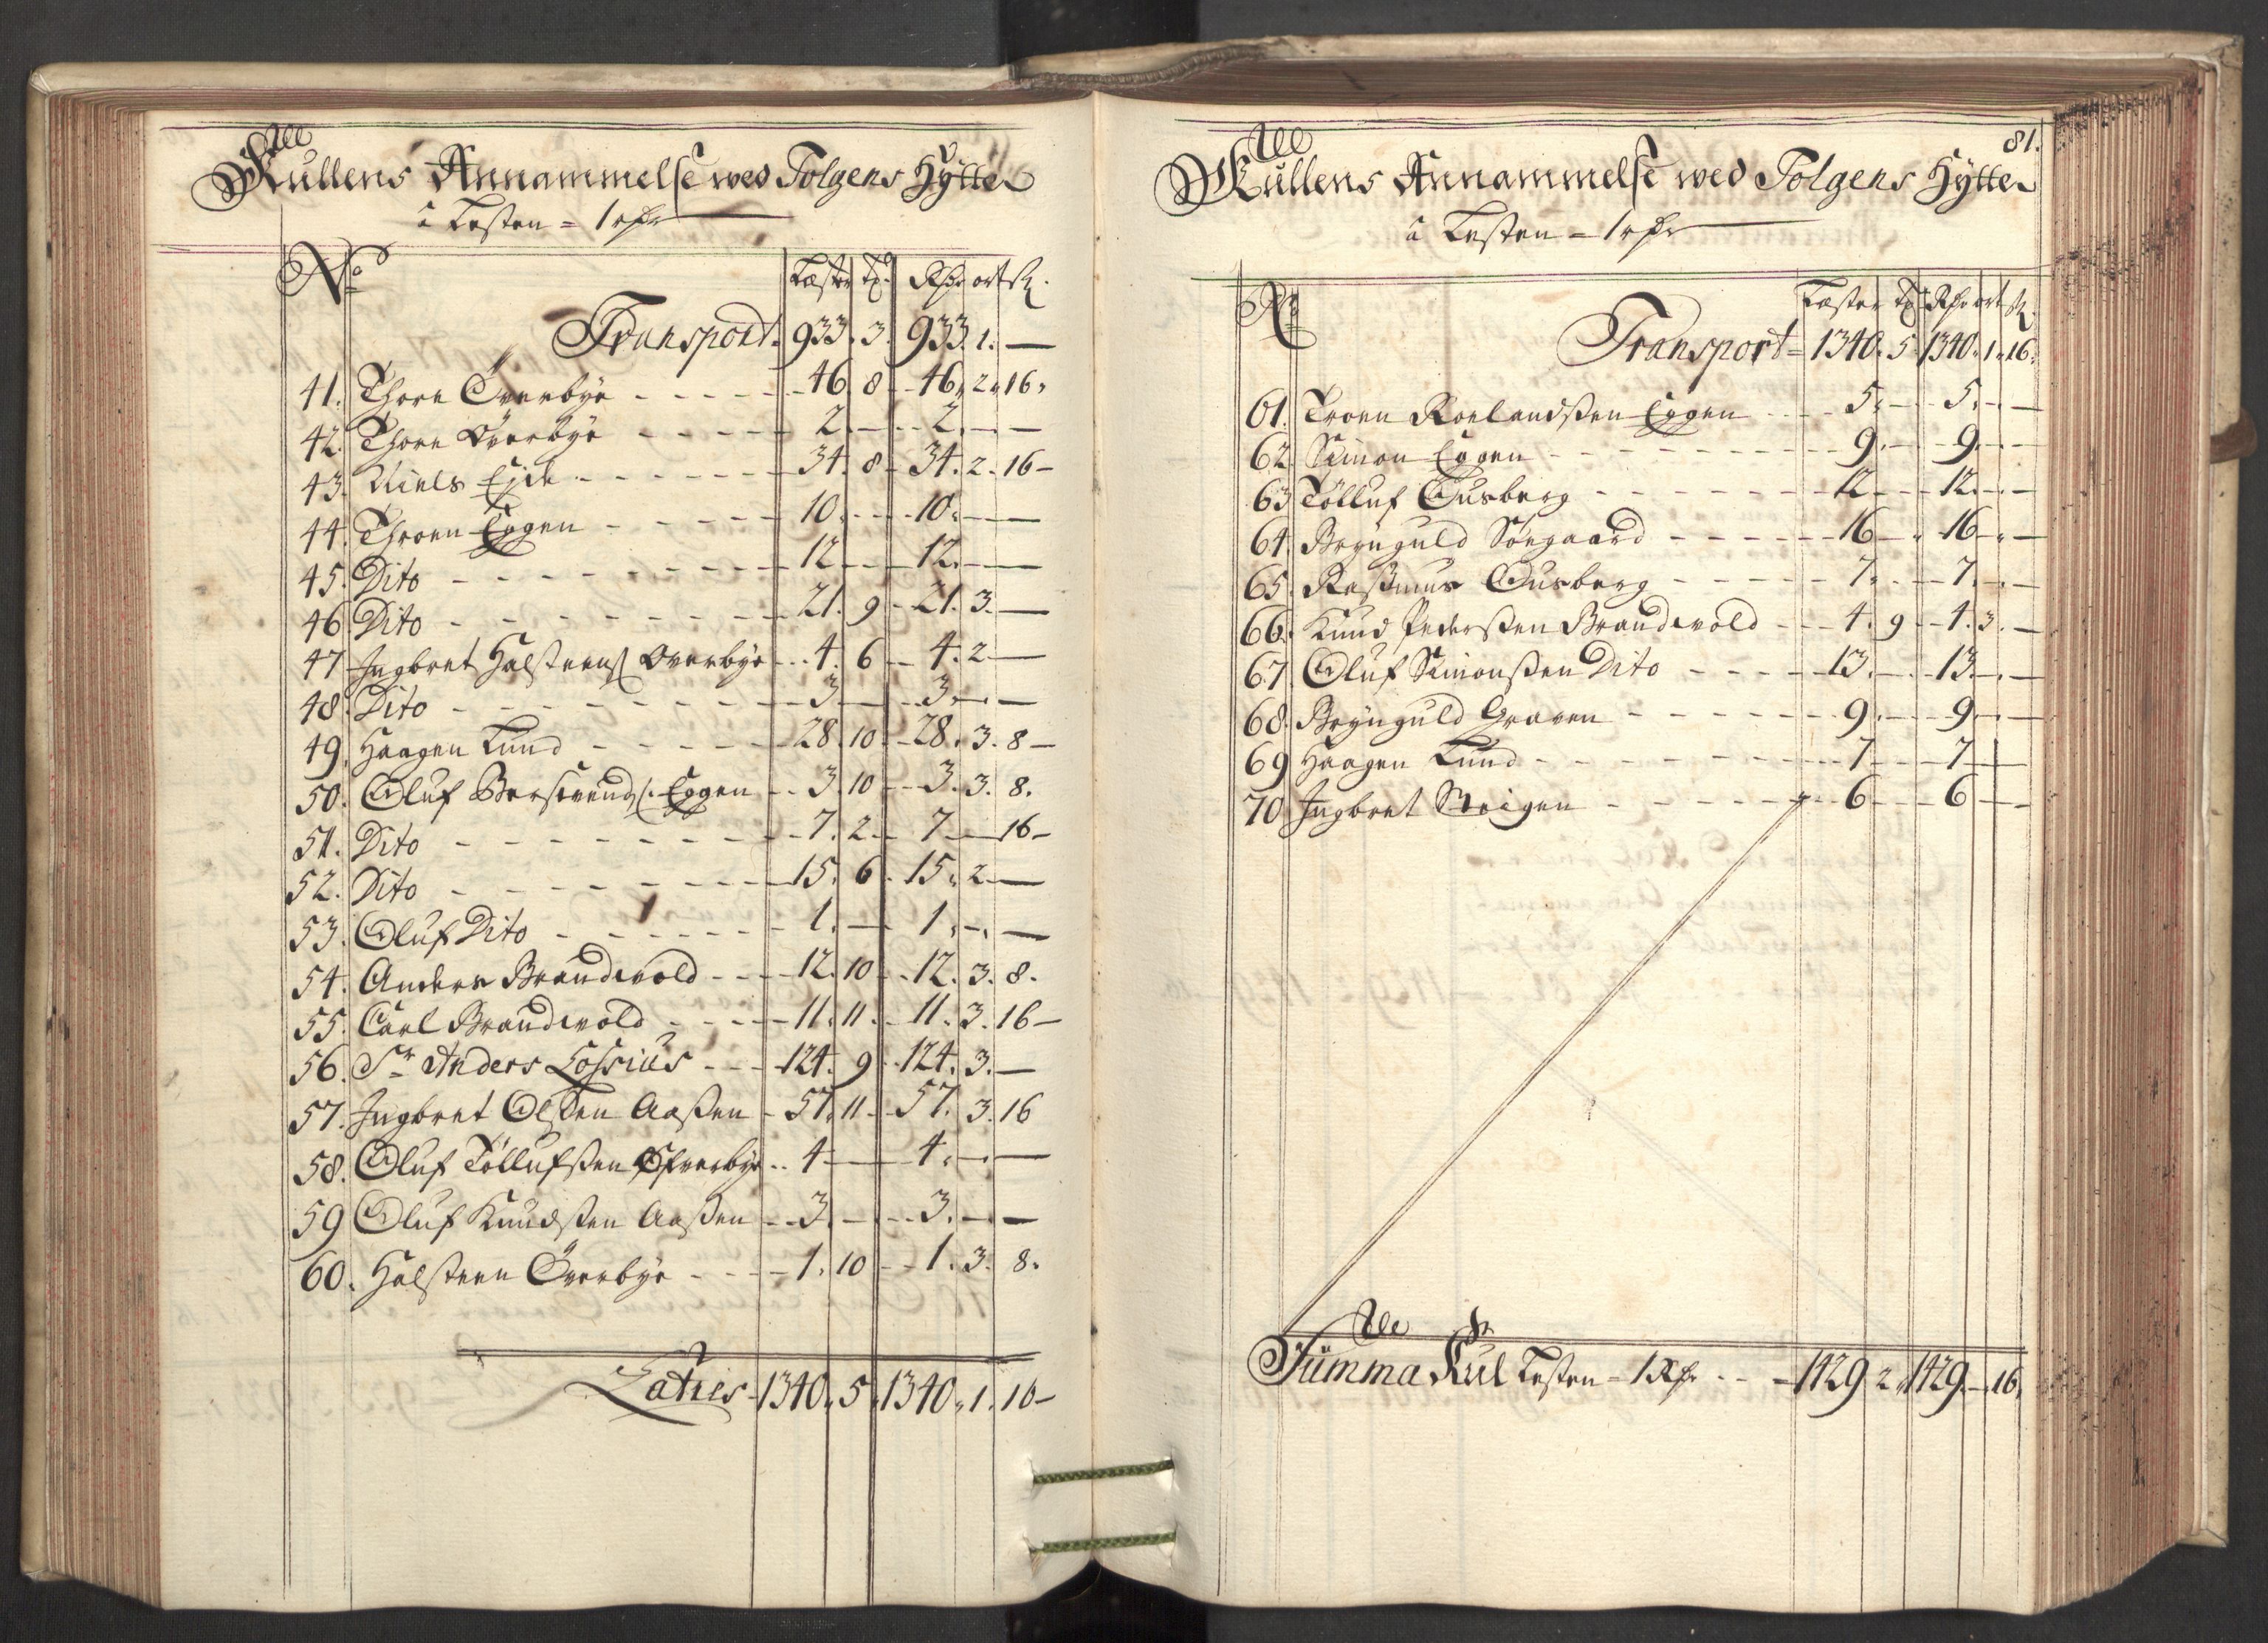 Kullens Annammelse wed Tolgens Hÿtte
â Lesten = 1 rdr
No Læster Tr Rdr ort ß
Transport. 933. 3. 933. 1. —
41. Thore Öwerbye - - - 46. 8 - 46. 2. 16.
42. Thore Öwerbye - - - 2. — - 2. — —
43. Niels Eide - - - 34. 8 - 34. 2. 16 -
44. Throen Eggen - - - 10. - - 10. — —
45. Dito - - - 12. - - 12. — —
46. Dito - - - 21. 9 - 21. 3. —
47. Ingbret Halsteens: Owerbye - - 4. 6 - 4. 2 —
48. Dito - - - 3 — - 3. — —
49. Haagen Lund - - - 28. 10 - 28. 3. 8 -
50. Oluf Berswends: Eggen - - 3. 10 - 3. 3. 8.
51. Dito - - - 7. 2 - 7 — 16 -
52. Dito - - - 15. 6 - 15. 2 —
53. Oluf Dito - - - 1. — 1. — —
54. Anders Brandwold - - - 12. 10 - 12. 3. 8.
55. Carl Brandwold - - - 11. 11 - 11. 3. 16 -
56. Sr Anders Lossius - - - 124. 9 - 124. 3. —
57. Ingbret Olsen Aasen - 57. 11 - 57. 3. 16
58. Oluf Tøllufsen Øfwerbye - - 4 — 4. — —
59 Oluf Knudsen Aasen - - 3. — - 3. — —
60. Halsteen Öwerbye - - - 1. 10 - 1. 3. 8.
Latus - 1340. 5. 1340. 1. 16 -
81.
Kullens Annammelse wed Tolgens Hÿtte
â Lesten = 1 rdr
No Læster Tr Rdr ort ß
Transport = 1340. 5. 1340. 1. 16.
61. Troen Roelandsen Eggen - - 5. — 5. — —
62. Simon Eggen - - - 9. — 9. — —
63 Tølluf Gusberg - - - 12 - - 12. — —
64. Brynguld Søegaard - - - 16 - - 16 - —
65. Rasmus Gusberg - - - 7. - - 7. — —
66. Knud Pedersen Brandwold - - 4. 9 - 4. 3. —
67. Oluf Simonsen Dito - - - 13. — 13. — —
68. Brynguld Graven - - - 9. — 9. — —
69 Haagen Lund - - - 7 - - 7 — —
70 Ingbret Steigen - - - 6 - - 6 — —
Summa Kul Lesten = 1 Rdr - - 1429. 2. 1429. —. 16.